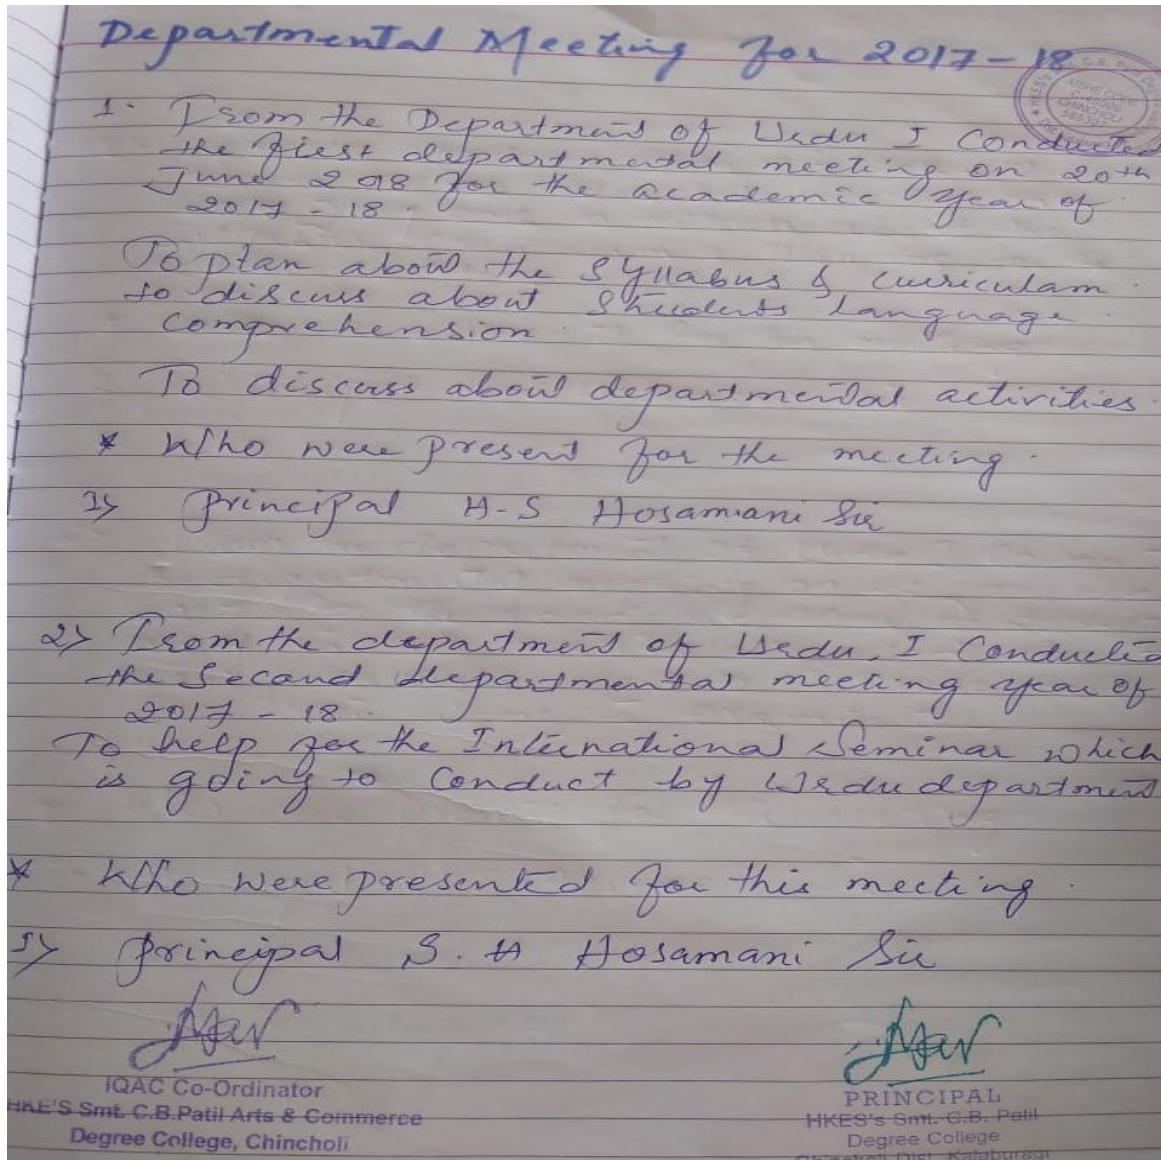 Departmental Meeting for 2017-18
1. From the Department of Urdu I Conducted
the first departmental meeting on 20th
June 2018 for the academic year of
2017-18.
To plan about the syllabus & curriculam.
to discuss about students language.
comprehension.
To discuss about departmental activities.
* Who were present for the meeting.
1> principal H-S Hosamani Sir
2> From the department of Urdu, I Conducted
the Second departmental meeting year of
2017-18.
To help for the International Seminar which
is going to conduct by Urdu department
* Who were presented for this meeting.
1> principal S.H Hosamani Sir
IQAC Co-Ordinator
HKE'S Smt. C.B.Patil Arts & Commerce
Degree College, Chincholi
PRINCIPAL
HKES's Smt. C.B. Patil
Degree College
Chincholi Dist. Kalaburagi